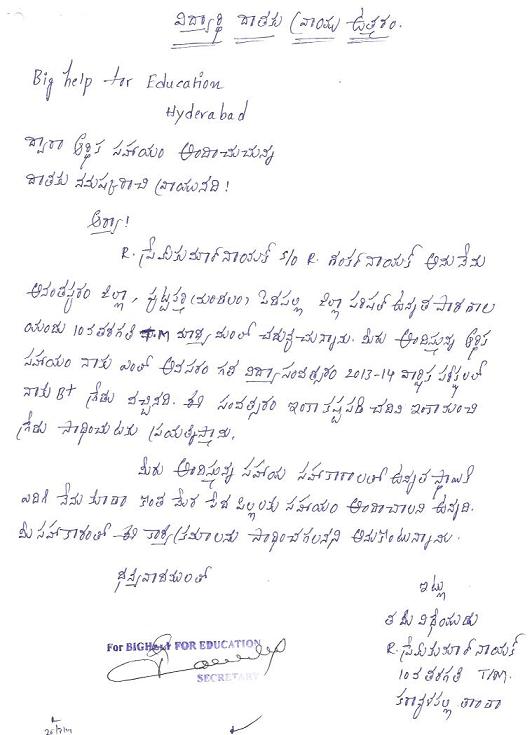 విద్యార్థి దాతకు వ్రాయు ఉత్తరం.
Big help for Education
Hyderabad
ద్వారా ఆర్థిక సహాయం అందించుచున్న
దాతకు నమస్కరించి వ్రాయునది!
ఆర్యా!
R. ప్రేమ్ కుమార్ నాయక్ S/o R. శంకర్ నాయక్ అను నేను
అనంతపురం జిల్లా, పుట్టపర్తి (మండలం) పెడపల్లి జిల్లా పరిషత్ ఉన్నత పాఠశాల
యందు 10వ తరగతి T.M మాధ్యమంలో చదువుచున్నాను. మీరు అందిస్తున్న ఆర్థిక
సహాయం నాకు ఎంతో అవసరం గత విద్యా సంవత్సరం 2013-14 వార్షిక పరీక్షలలో
నాకు B+ గ్రేడు వచ్చినది. ఈ సంవత్సరం ఇంకా కష్టపడి చదివి ఇంకా మంచి
గ్రేడు సాధించుటకు ప్రయత్నిస్తాను.
మీరు అందిస్తున్న సహాయ సహకారాలతో ఉన్నత స్థాయికి
ఎదిగి నేను కూడా కొంత మేర పేద పిల్లలకు సహాయం అందించాలని ఉన్నది.
మీ సహకారంతో ఈ కార్యక్రమాలను సాధించగలనని అనుకొంటున్నాను.
ధన్యవాదములతో
ఇట్లు
తమ విధేయుడు
R. ప్రేమ్ కుమార్ నాయక్
10వ తరగతి T/M.
తాండా
For BIGHelP FOR EDUCATION
SECRETARY